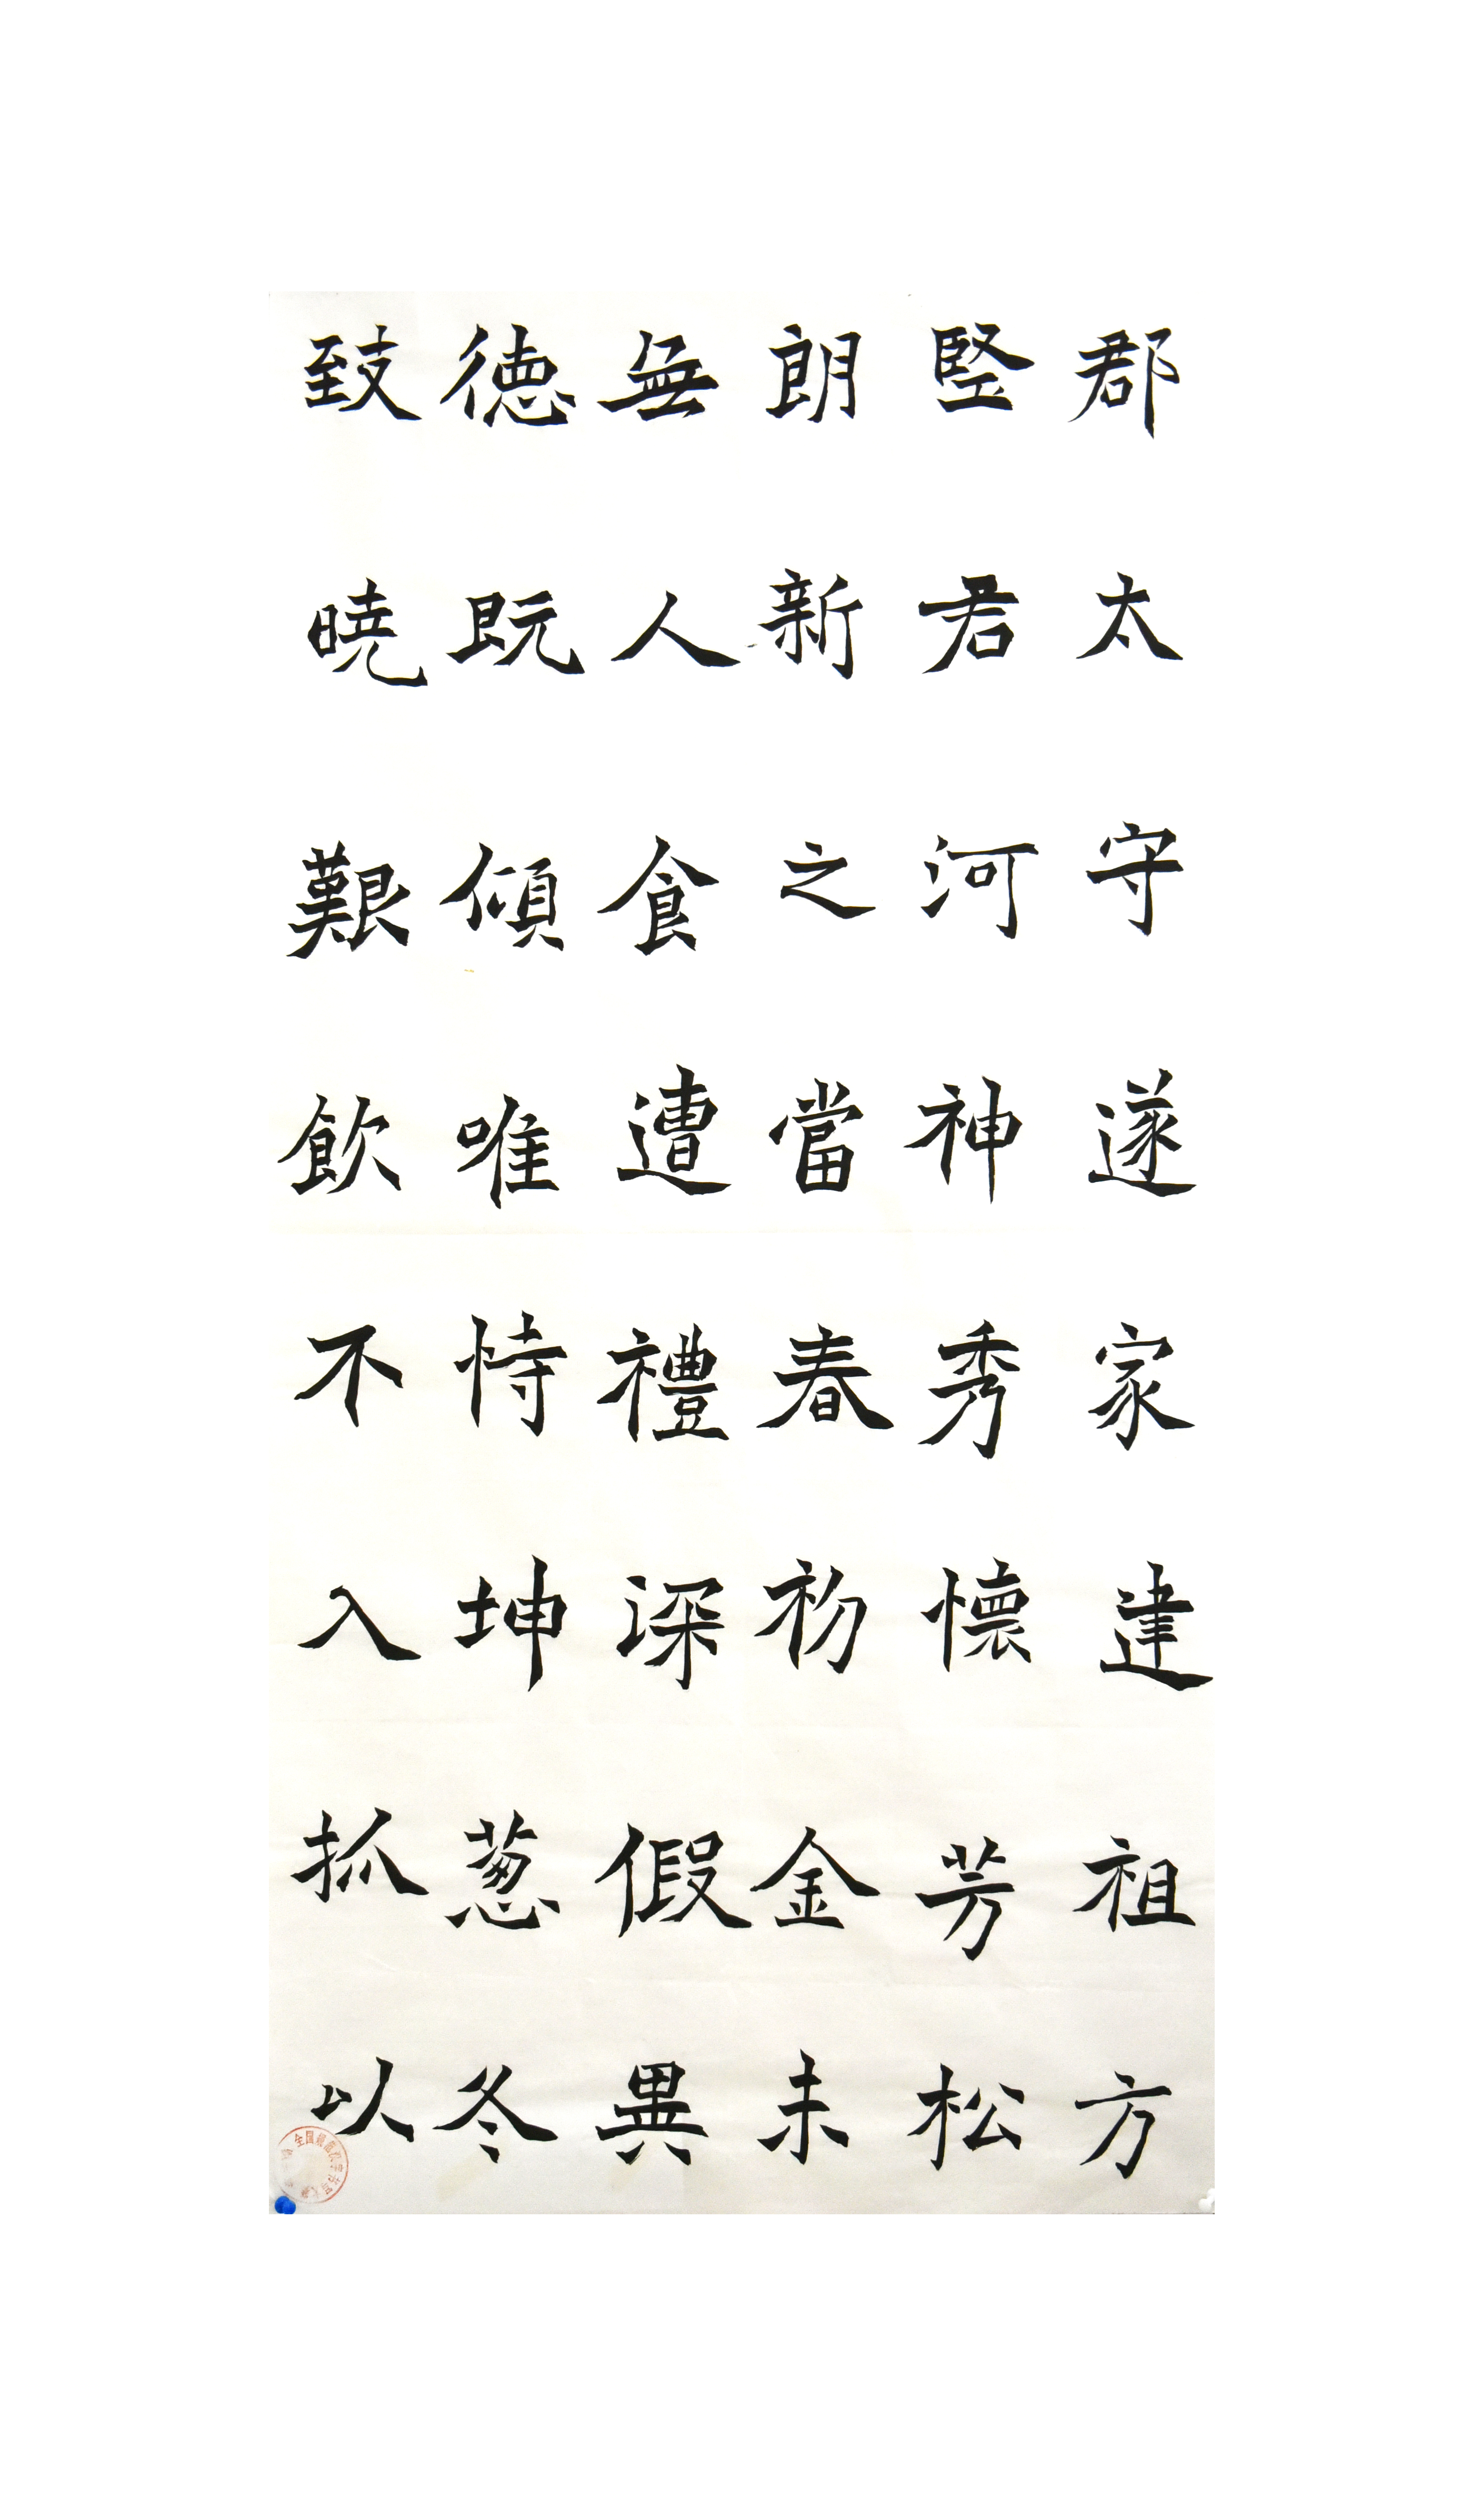 郡太守遂家達祖方
竪君河神秀懷芳松
朗新之當春初金未
無人食遭禮深假異
德既傾唯恃坤葱冬
致曉艱飲不入抓以